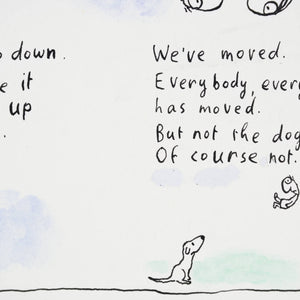 down.
it
up
We've moved.
Everybody, every
has moved.
But not the dog
Of course not.